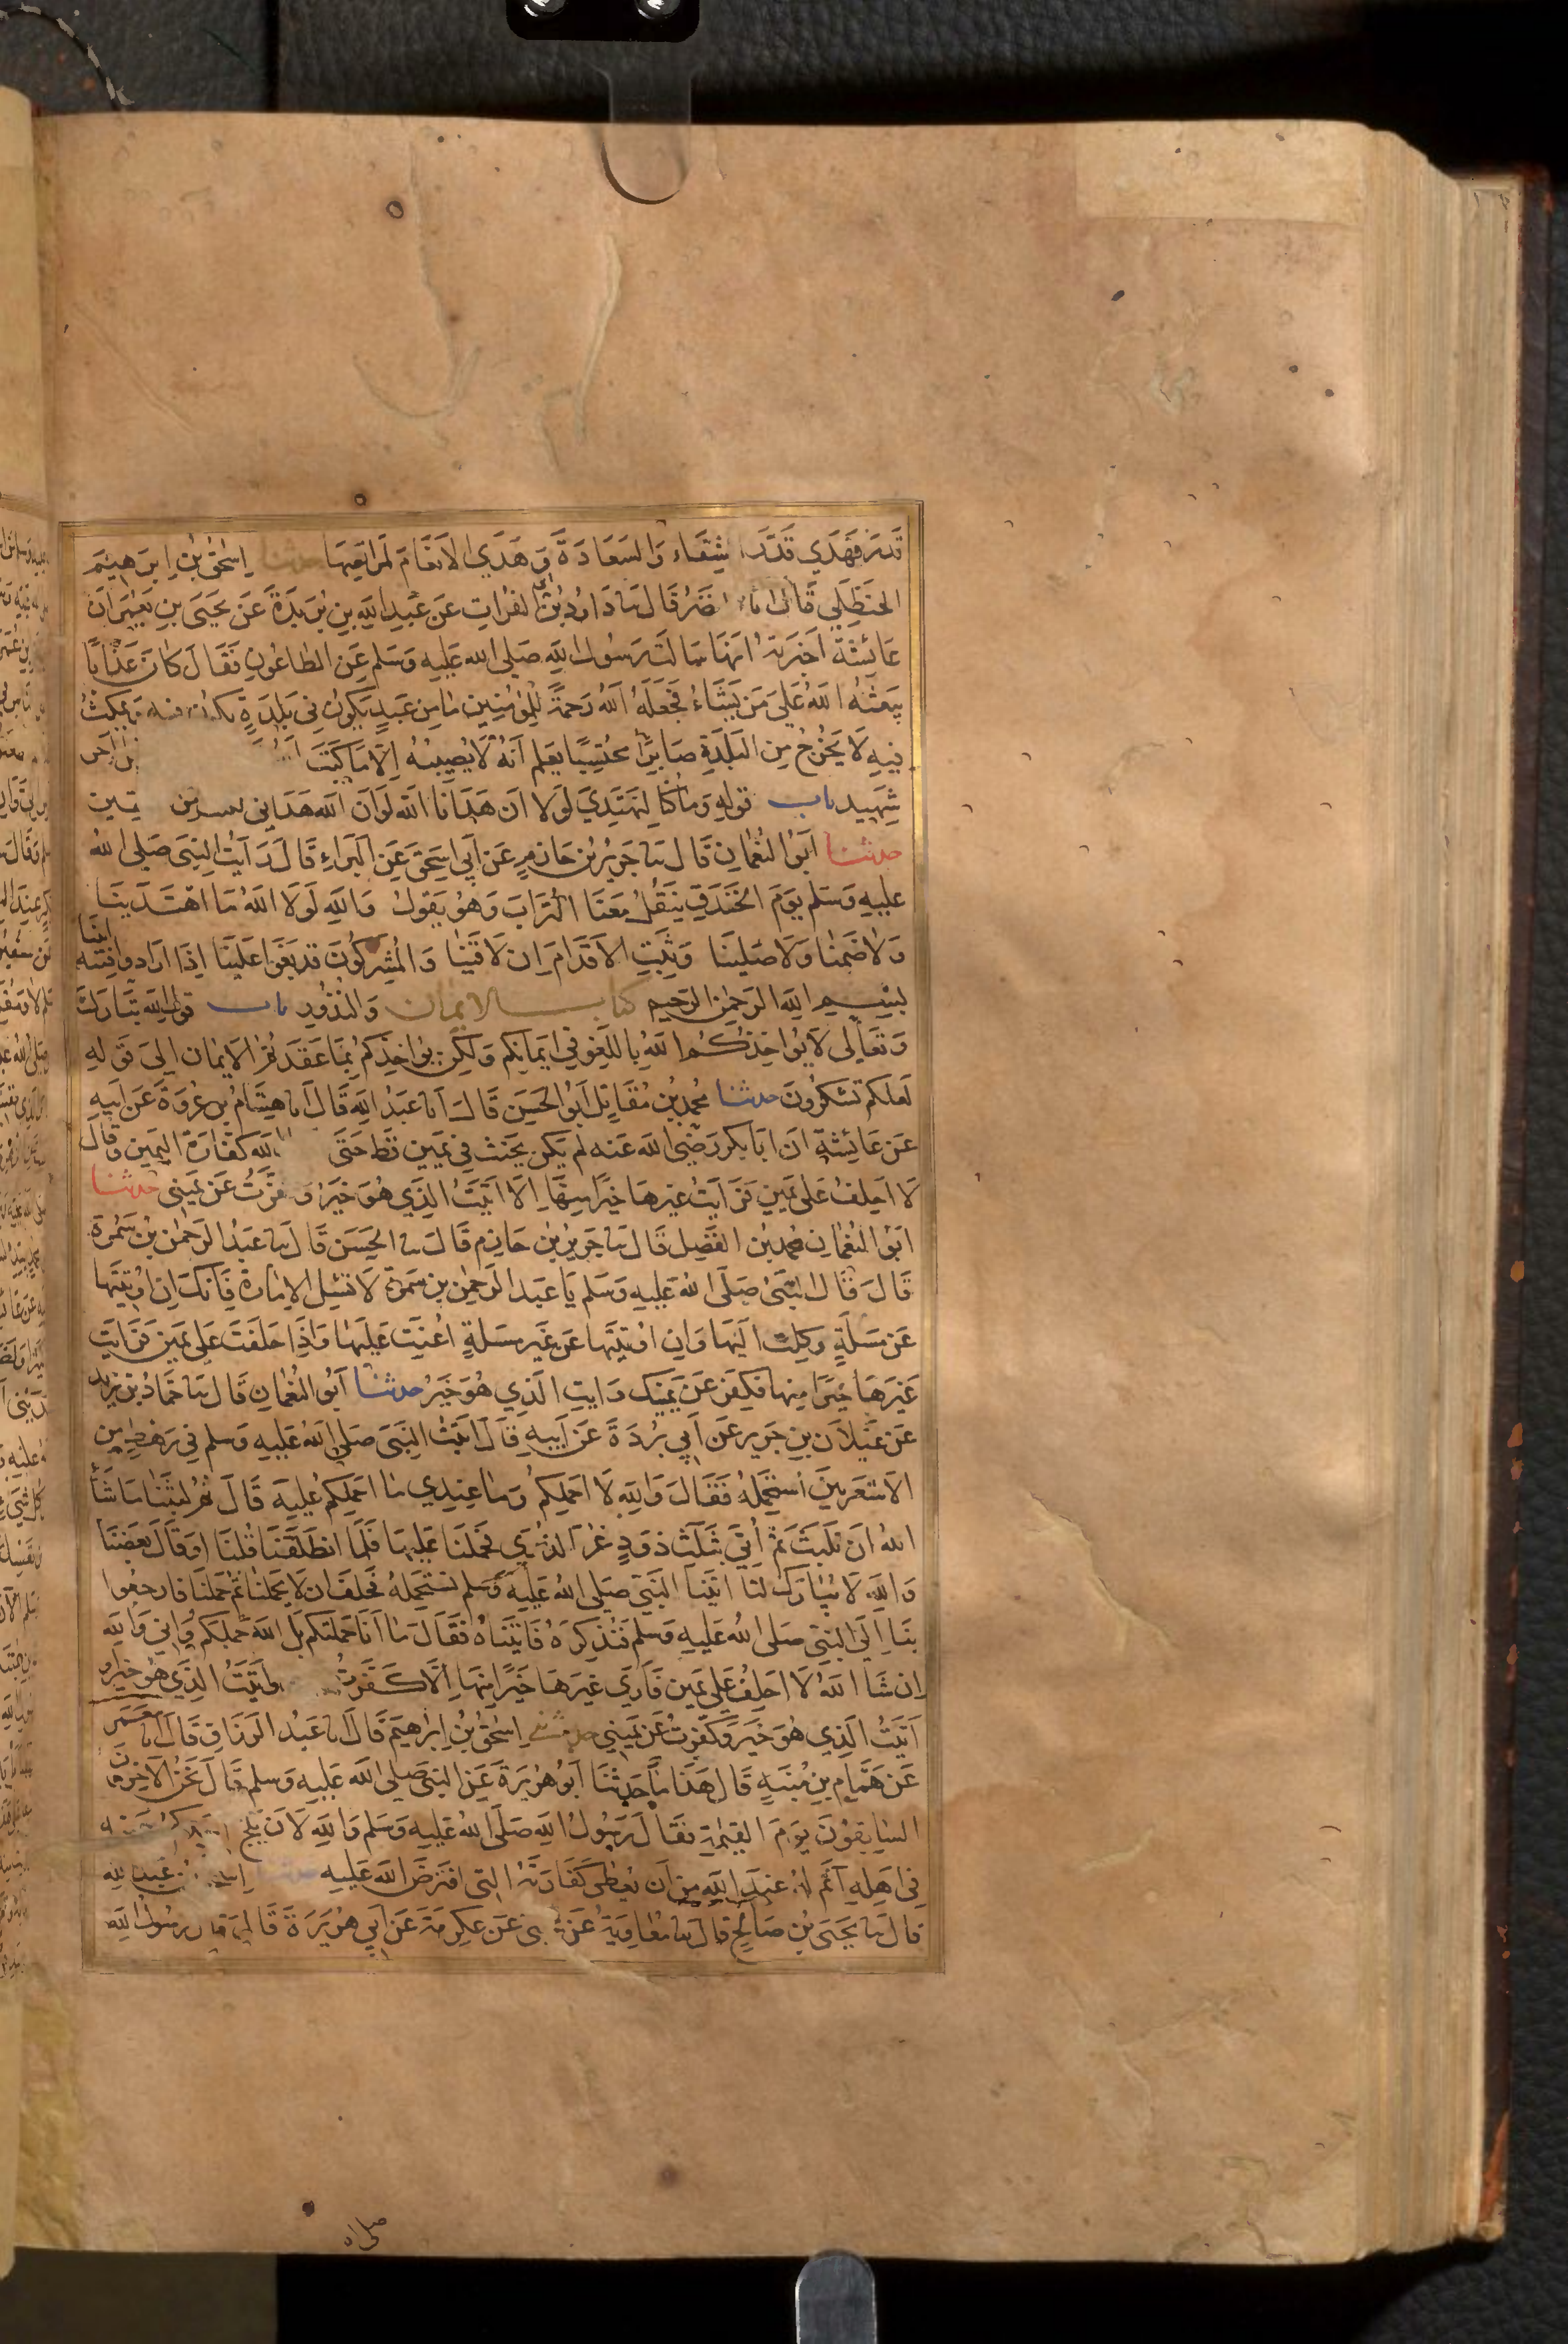 قدر فهدى قدر الشقاء والسعادة وهدى الانعام لمراتعها حدثنا اسحق بن ابرهيم
الحنظلي قال انا النضر قال ثنا داود بن ابي الفرات عن عبد الله بن بريدة عن يحيى بن يعمر ان
عائشة اخبرته انها سالت رسول الله صلى الله عليه وسلم عن الطاعون فقال كان عذابا
يبعثه الله على من يشاء فجعله الله رحمة للمؤمنين ما من عبد يكون في بلدة يكون فيه ويمكث
فيه لا يخرج من البلدة صابرا محتسبا يعلم انه لا يصيبه الا ما كتب الله اجر
شهيد باب قوله وما كنا لنهتدي لولا ان هدانا الله لو ان الله هداني لكنت من المتقين
حدثنا ابو النعمان قال ثنا جرير بن حازم عن ابي اسحق عن البراء قال رايت النبي صلى الله
عليه وسلم يوم الخندق ينقل معنا التراب وهو يقول والله لولا الله ما اهتدينا
ولا صمنا ولا صلينا وثبت الاقدام ان لاقينا والمشركون قد بغوا علينا اذا ارادوا فتنة ابينا
بسم الله الرحمن الرحيم كتاب الايمان والنذور باب قول الله تبارك
وتعالى لا يواخذكم الله باللغو في ايمانكم ولكن يواخذكم بما عقدتم الايمان الى قوله
لعلكم تشكرون حدثنا محمد بن مقاتل ابو الحسن قال انا عبد الله قال انا هشام بن عروة عن ابيه
عن عائشة ان ابا بكر رضي الله عنه لم يكن يحنث في يمين قط حتى الله كفارة اليمين وقال
لا احلف على يمين فرايت غيرها خيرا منها الا اتيت الذي هو خير وكفرت عن يميني حدثنا
ابو النعمان محمد بن الفضل قال ثنا جرير بن حازم قال ثنا الحسن قال ثنا عبد الرحمن بن سمرة
قال قال النبي صلى الله عليه وسلم يا عبد الرحمن بن سمرة لا تسئل الامارة فانك ان اوتيتها
عن مسلة وكلت اليها وان اوتيتها عن غير مسلة اعنت عليها واذا حلفت على يمين فرايت
غيرها خيرا منها فكفر عن يمينك وايت الذي هو خير حدثنا ابو النعمان قال ثنا حماد بن زيد
عن غيلان بن جرير عن ابي بردة عن ابيه قال اتيت النبي صلى الله عليه وسلم في رهط من
الاشعريين استحمله فقال والله لا احملكم وما عندي ما احملكم عليه قال ثم لبثنا ما شاء
الله ان نلبث ثم اتي بثلث ذود غر الذرى فحملنا عليها فلما انطلقنا قلنا او قال بعضنا
والله لا يبارك لنا اتينا النبي صلى الله عليه وسلم نستحمله فحلف ان لا يحملنا ثم حملنا فارجعوا
بنا الى النبي صلى الله عليه وسلم فنذكره فاتيناه فقال ما انا حملتكم بل الله حملكم واني والله
ان شا الله لا احلف على يمين فارى غيرها خيرا منها الا كفرت واتيت الذي هو خير او
اتيت الذي هو خير وكفرت عن يميني حدثني اسحق بن ابرهيم قال انا عبد الرزاق قال انا معمر
عن همام بن منبه قال هذا ما حدثنا ابو هريرة عن النبي صلى الله عليه وسلم قال نحن الاخرون
السابقون يوم القيمة فقال رسول الله صلى الله عليه وسلم والله لان يلج احدكم بيمينه
في اهله آثم له عند الله من ان يعطي كفارته التي افترض الله عليه حدثنا عبد الله
قال ثنا يحيى بن صالح قال ثنا معاوية عن يحيى عن عكرمة عن ابي هريرة قال قال رسول الله
صلى الله